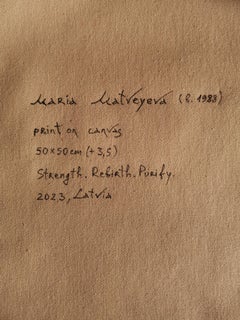 Maria Matveyeva (R. 1988)
print on canvas
50x50cm (+3,5)
Strength. Rebirth. Purify.
2023, Latvia